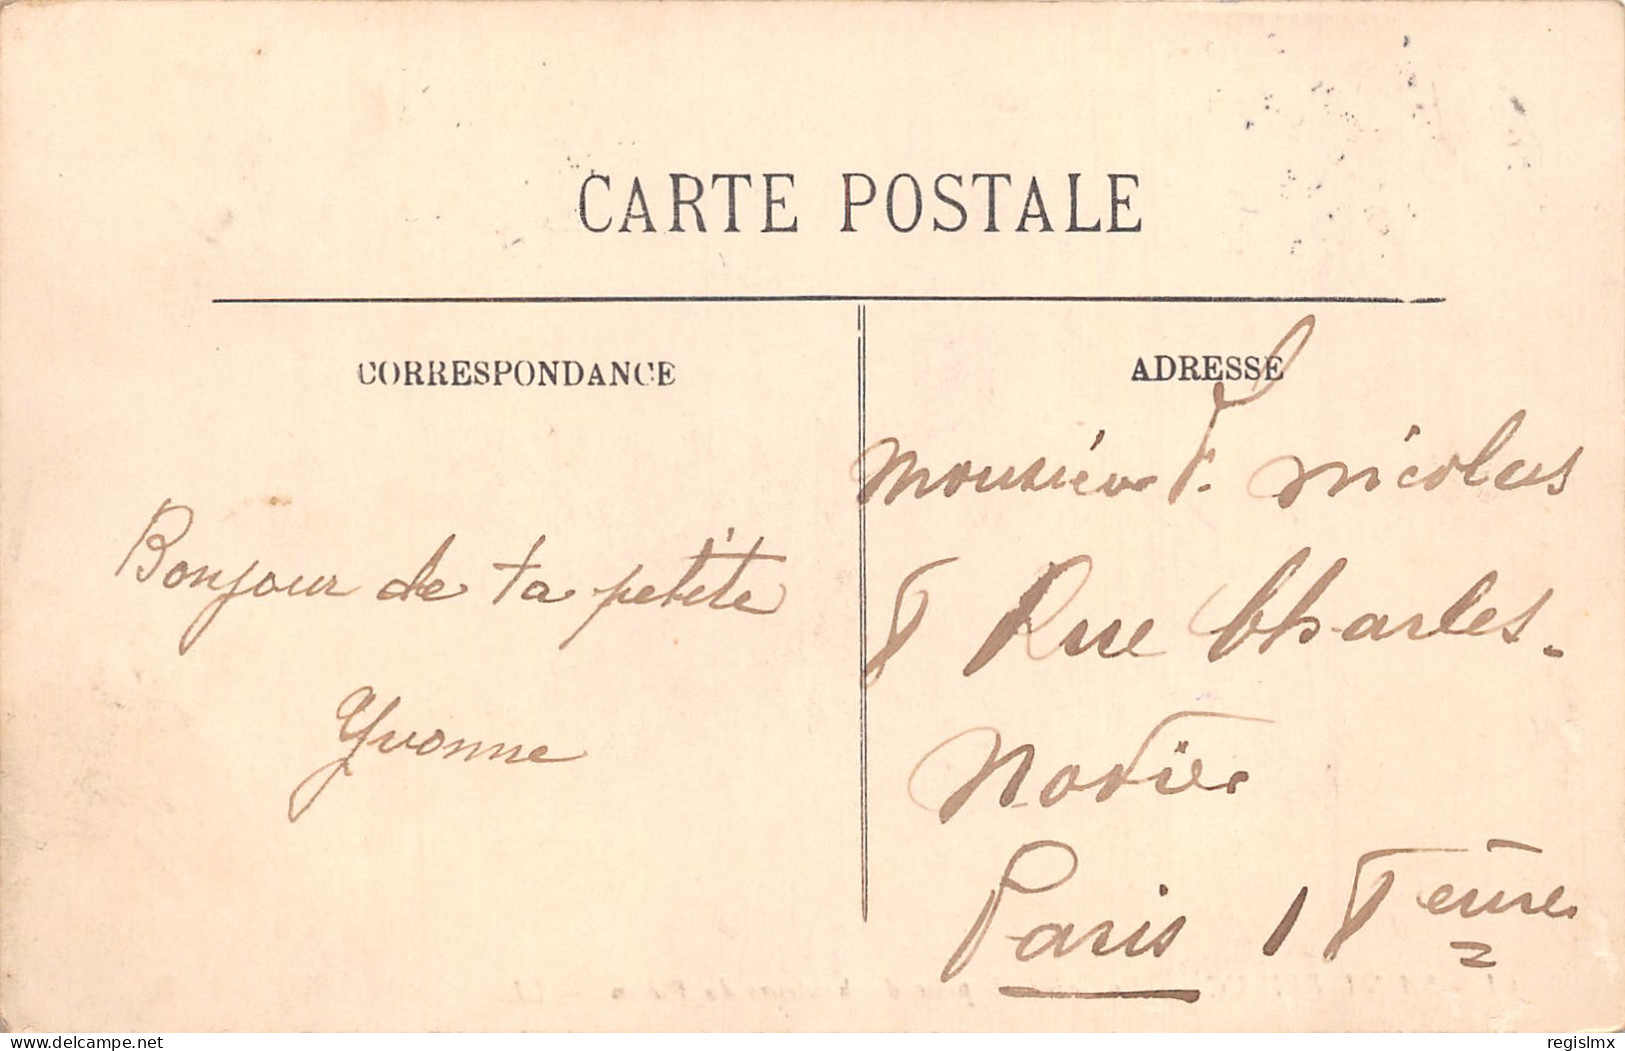 CARTE POSTALE
CORRESPONDANCE
ADRESSE
Bonjour de ta petite
Yvonne
Monsieur F. Nicolas
7 Rue Charles.
Nodier
Paris 17eme
delcampe.net
regislmx